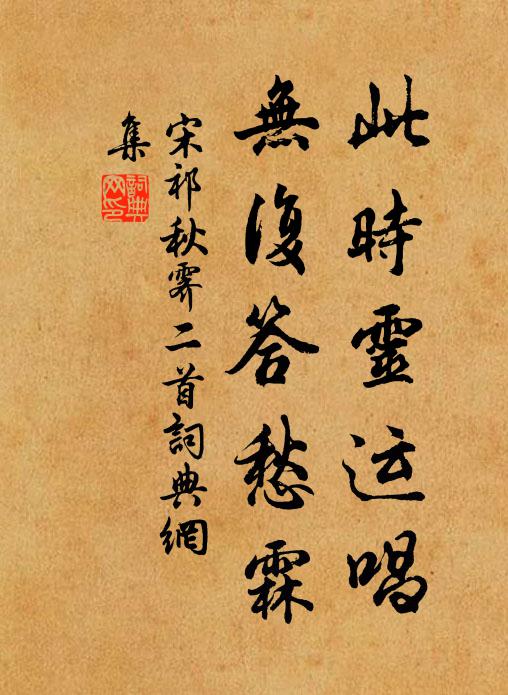 此時靈运唱
無復答愁霖
宋祁秋霽二首詞典網
集
詞典
网印